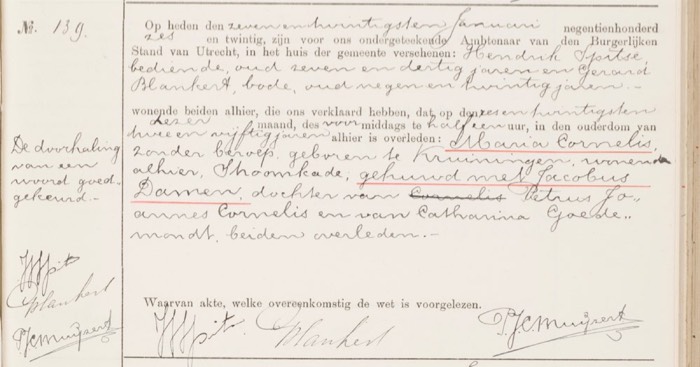 No. 139.
Op heden den zeven en twintigsten Januari negentienhonderd
zes en twintig, zijn voor ons ondergeteekende Ambtenaar van den Burgerlijken
Stand van Utrecht, in het huis der gemeente verschenen: Hendrik Spitse,
bediende, oud zeven en dertig jaren en Gerard
Blankert, bode, oud negen en twintig jaren.-
wonende beiden alhier, die ons verklaard hebben, dat op den zes en twintigsten
dezer maand, des voor middags te half een uur, in den ouderdom van
twee en vijftig jaren alhier is overleden: Maria Cornelis,
zonder beroep, geboren te Kruiningen, wonende
alhier, Stroomkade, gehuwd met Jacobus
Damen, dochter van Cornelis Petrus Jo-
annes Cornelis en van Catharina Goede..
mondt, beiden overleden.-
De doorhaling
van een
woord goed-
gekeurd.-
Blankert
Waarvan akte, welke overeenkomstig de wet is voorgelezen.
Blankert